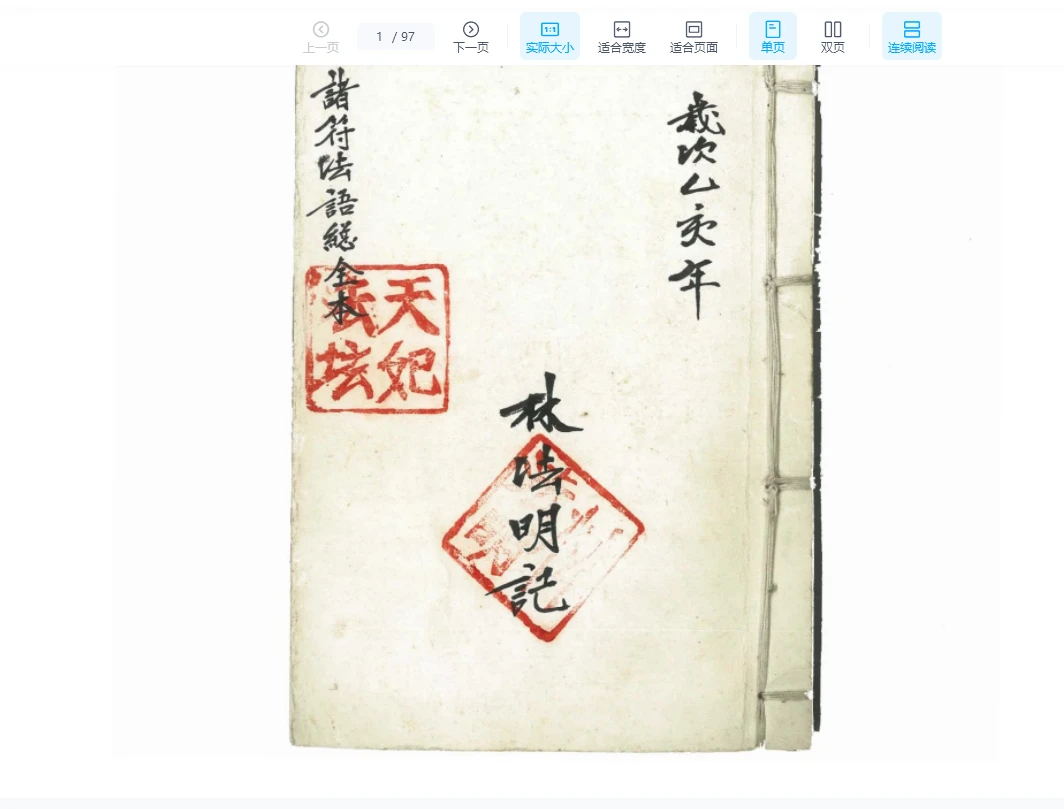 上一页 1 / 97 下一页 实际大小 适合宽度 适合页面 单页 双页 连续阅读
歲次乙亥年
林法明記
諸符法語總全本
天妃
法坛